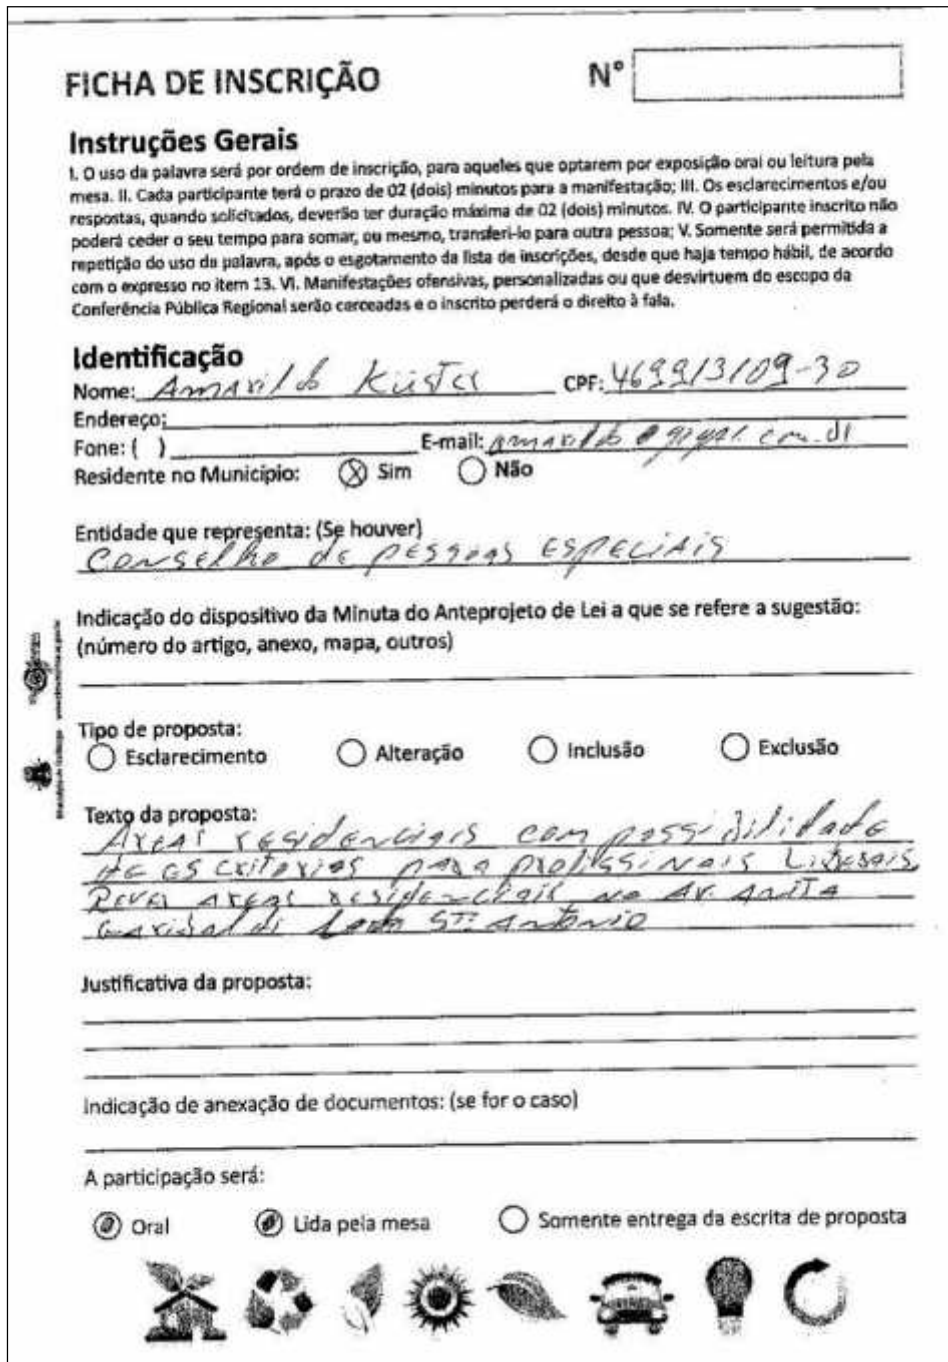 FICHA DE INSCRIÇÃO
Nº
Instruções Gerais
I. O uso da palavra será por ordem de inscrição, para aqueles que optarem por exposição oral ou leitura pela
mesa. II. Cada participante terá o prazo de 02 (dois) minutos para a manifestação; III. Os esclarecimentos e/ou
respostas, quando solicitados, deverão ter duração máxima de 02 (dois) minutos. IV. O participante inscrito não
poderá ceder o seu tempo para somar, ou mesmo, transferi-lo para outra pessoa; V. Somente será permitida a
repetição do uso da palavra, após o esgotamento da lista de inscrições, desde que haja tempo hábil, de acordo
com o expresso no item 13. VI. Manifestações ofensivas, personalizadas ou que desvirtuem do escopo da
Conferência Pública Regional serão cerceadas e o inscrito perderá o direito à fala.
Identificação
Nome: Amarildo Küster CPF: 469913109-30
Endereço:
Fone: ( ) E-mail:
Residente no Município: Sim Não
Entidade que representa: (Se houver)
Conselho de pessoas ESPECIAIS
Indicação do dispositivo da Minuta do Anteprojeto de Lei a que se refere a sugestão:
(número do artigo, anexo, mapa, outros)
Tipo de proposta:
Esclarecimento Alteração Inclusão Exclusão
Texto da proposta:
Areas residenciais com possibilidade
de escritorios para profissinais Liberais,
Rever areas residenciais na AV. Anita
Garibaldi STº Antonio
Justificativa da proposta:
Indicação de anexação de documentos: (se for o caso)
A participação será:
Oral Lida pela mesa Somente entrega da escrita de proposta